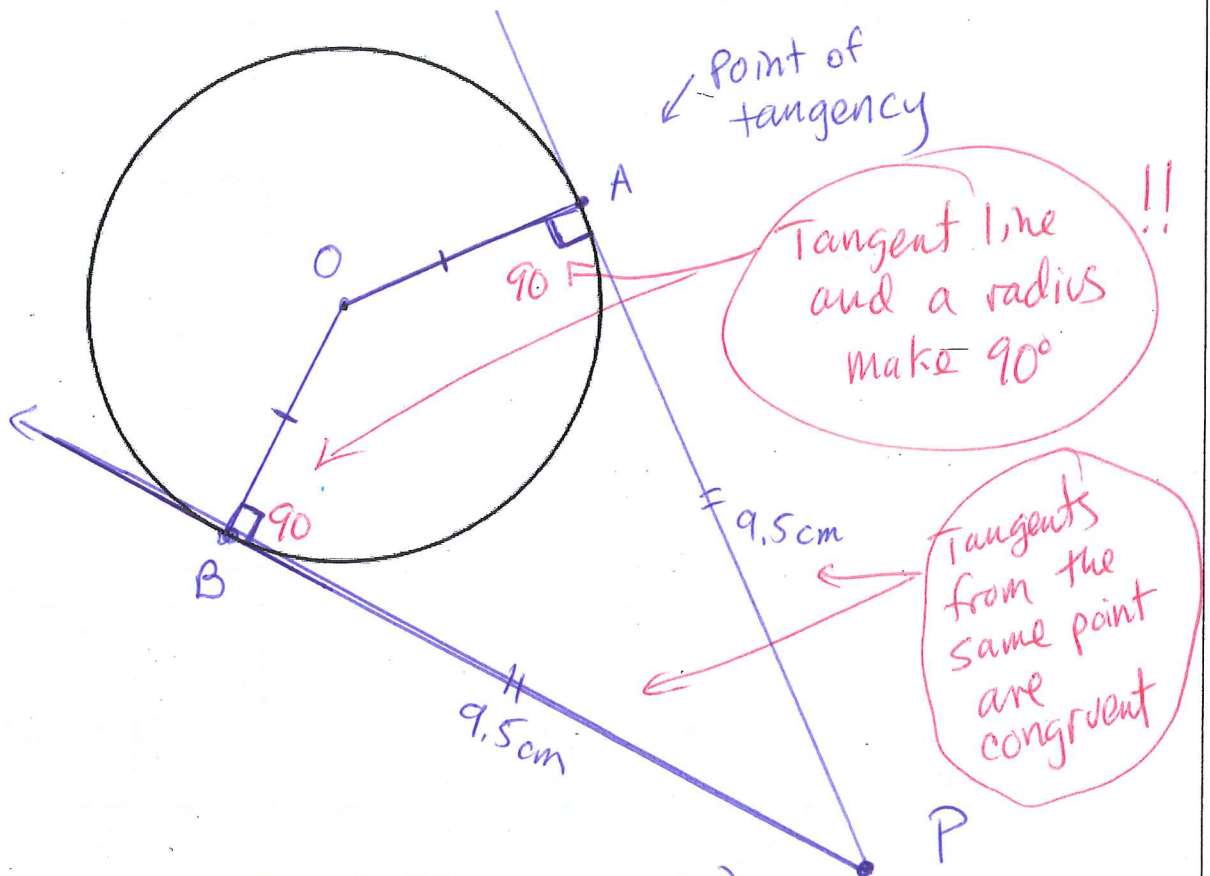 Point of
tangency
A
!!
Tangent line
and a radius
make 90°
O
90
90
B
9.5cm
9.5cm
Tangents
from the
same point
are
congruent
P